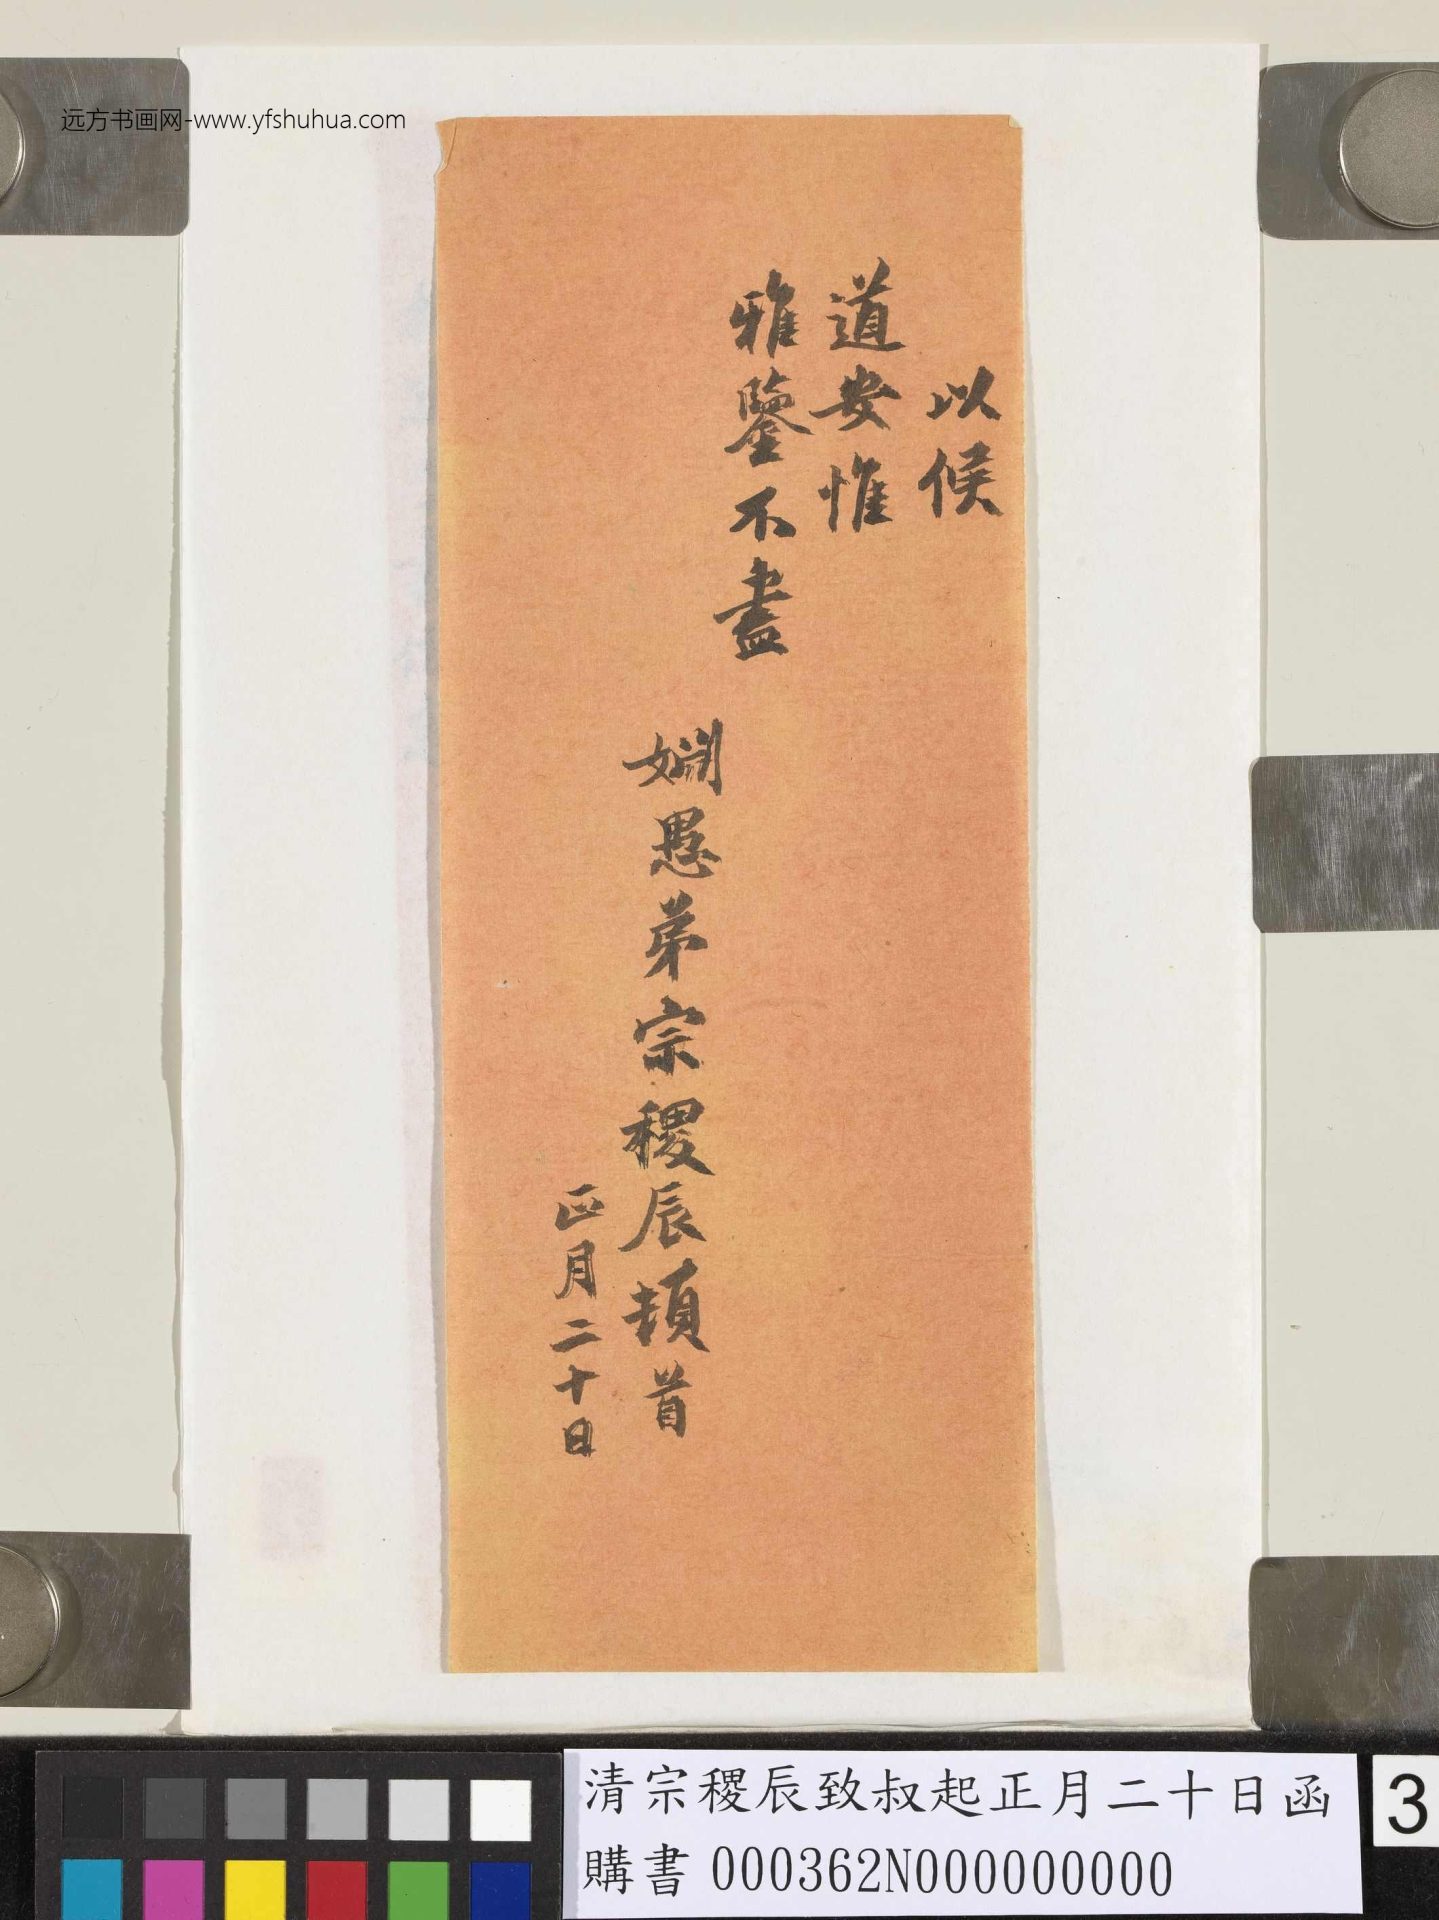 远方书画网-www.yfshuhua.com
以候
道安惟
雅鑒不盡
姻愚弟宗稷辰頓首
正月二十日
清宗稷辰致叔起正月二十日函
購書 000362N000000000
3